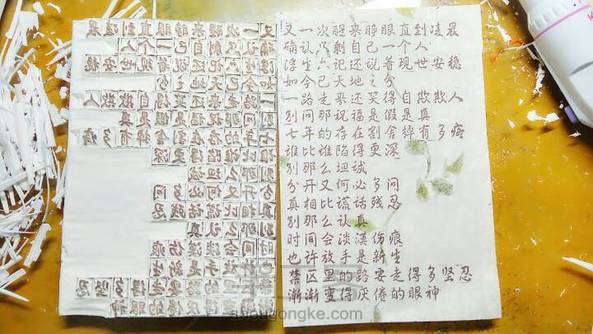 又一次醒来睁眼直到凌晨
确认只剩自己一个人
浮生六记还说着现世安稳
如今已天地之分
一路走来还笑得自欺欺人
别问那祝福是假是真
七年的存在割舍掉有多疼
谁比谁陷得更深
别那么坦诚
分开又何必多问
真相比谎话残忍
别那么认真
时间会淡漠伤痕
也许放手是新生
禁区里的路要走得多坚忍
渐渐变得厌倦的眼神